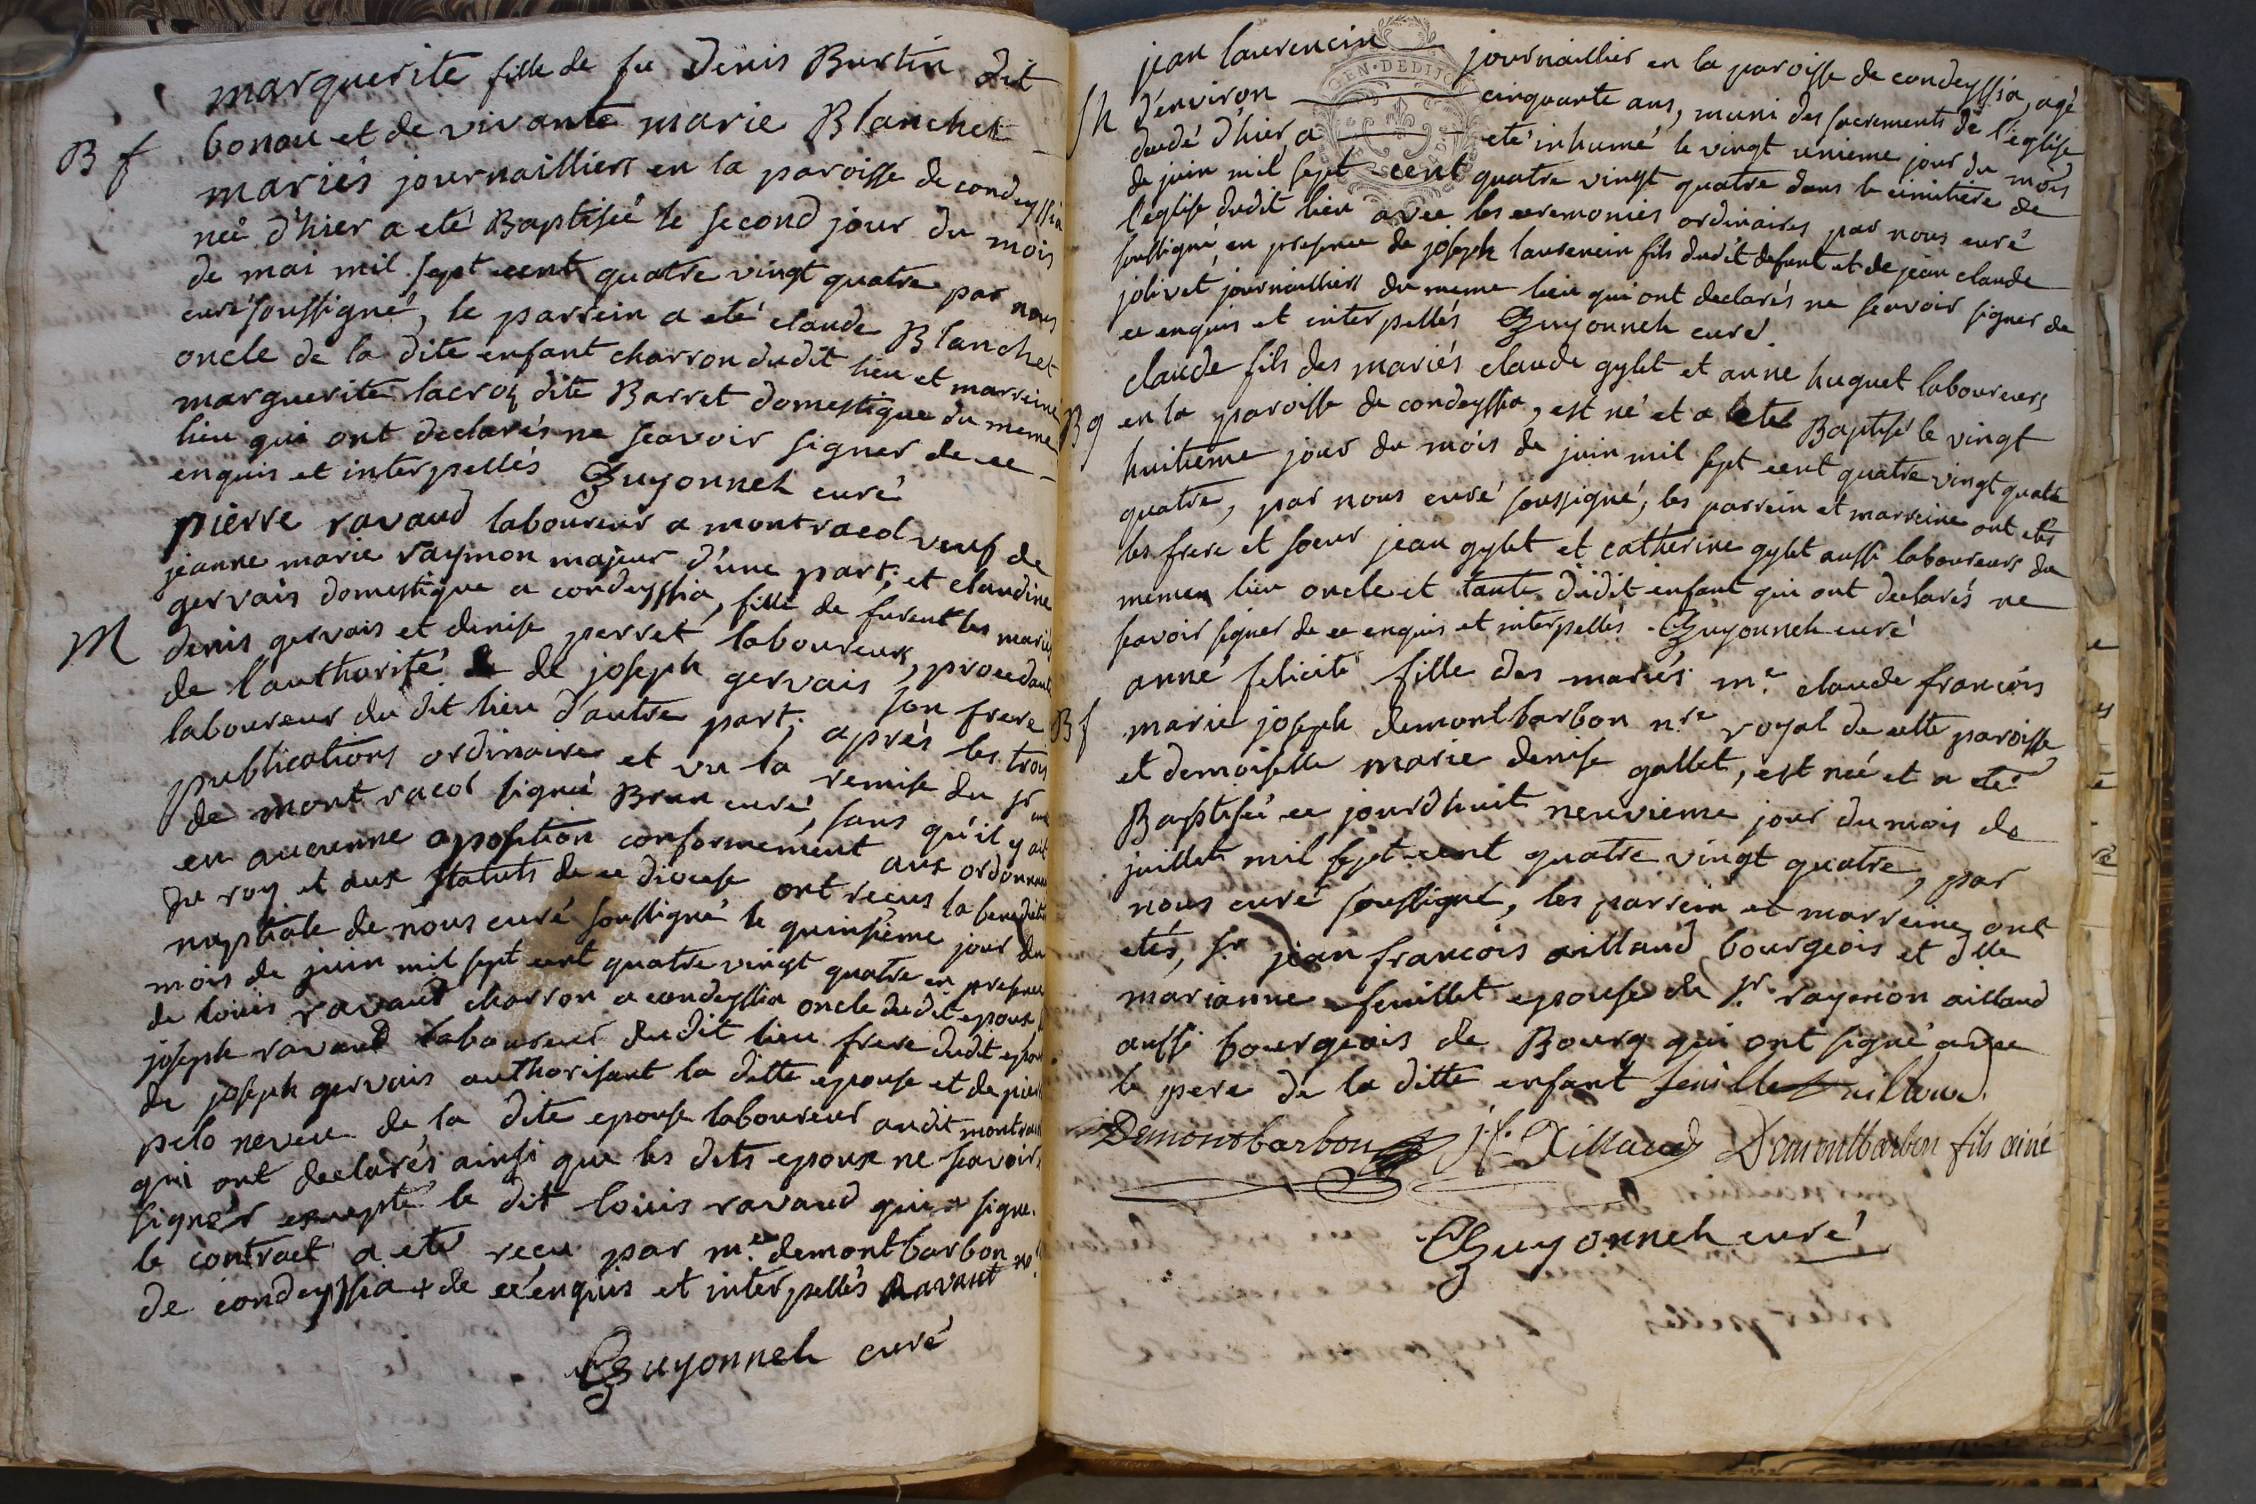 marguerite fille de fu denis Burtin dit
B f bonou et de vivante marie Blanchet
mariés journailliers en la paroisse de condeyssia
neé d'hier a eté Baptisée le second jour du mois
de mai mil sept cent quatre vingt quatre par nous
curé soussigné, le parrein a eté claude Blanchet
oncle de la dite enfant charron dudit lieu et marreine
marguerite lacroi dite Barret domestique du meme
lieu qui ont declarés ne scavoir signer de ce
enquis et interpellés Guyonneh curé
pierre ravaud laboureur a montracol veuf de
jeanne marie raymon majeur d'une part; et claudine
gervais domestique a condeyssia, fille de furent les mariés
M denis gervais et denise perret laboureurs, procedante
de l'authorité de joseph gervais son frere
laboureur du dit lieu d'autre part; aprés les trois
publications ordinaires et vu la remise du sr curé
de montracol signé Brun curé, sans qu'il y ait
eu aucunne oposition conformement aux ordonnan
du roy et aux statuts de ce diocese ont recus la benedicti
nuptiale de nous curé soussigné le quinsiéme jour du
mois de juin mil sept cent quatre vingt quatre en presence
de louis ravaud charron a condeyssia oncle du dit epoux
joseph ravaud laboureur du dit lieu frere dudit epoux
de joseph gervais authorisant la ditte epouse et de pier
pelo neveu de la dite epouse laboureur audit montraco
qui ont declarés ainsi que les dits epoux ne scavoir
signer excepté le dit louis ravaud qui a signe.
le contract a eté recu par m.e demontbarbon nre
de condeyssia + de ce enquis et interpellés Ravaut
Guyonneh curé
jean laurencin journaillier en la paroisse de condeyssia, agé
Sh d'environ cinquante ans, muni des sacrements de l'eglise
decedé d'hier, a eté inhumé le vingt unieme jour du mois
de juin mil sept cent quatre vingt quatre dans le cimitiere de
l'eglise dudit lieu avec les ceremonies ordinaires par nous curé
soussigné, en presence de joseph laurencin fils dudit defunt et de jean claude
jolivet journailliers du meme lieu qui ont declarés ne scavoir signer de
ce enquis et interpellés Guyonneh curé.
claude fils des mariés claude gylet et anne huguet laboureurs
B g en la paroisse de condeyssia, est né et a eté Baptisé le vingt
huitieme jour du mois de juin mil sept cent quatre vingt quatre
quatre, par nous curé soussigné; les parrein et marreine ont etés
les frere et soeur jean gylet et catherine gylet aussi laboureurs du
meme lieu oncle et tante dudit enfant qui ont declarés ne
scavoir signer de ce enquis et interpellés. Guyonneh curé
anne felicité fille des mariés m.e claude francois
B f marie joseph demontbarbon n.re royal de cette paroisse
et demoiselle marie denise gallet, est neé et a eté
Baptisée ce jourdhuit neuvieme jour du mois de
juillet mil sept cent quatre vingt quatre, par
nous curé soussigné, les parrein et marreine ont
etés, sr jean francois aillaud bourgeois et dlle
marianne feuillet epouse de sr raymon aillaud
aussi bourgeois de Bourg qui ont signé avec
le pere de la ditte enfant feuillet aillaud.
Demontbarbon Jf. Aillaud Demontbarbon fils ainé
Guyonneh curé